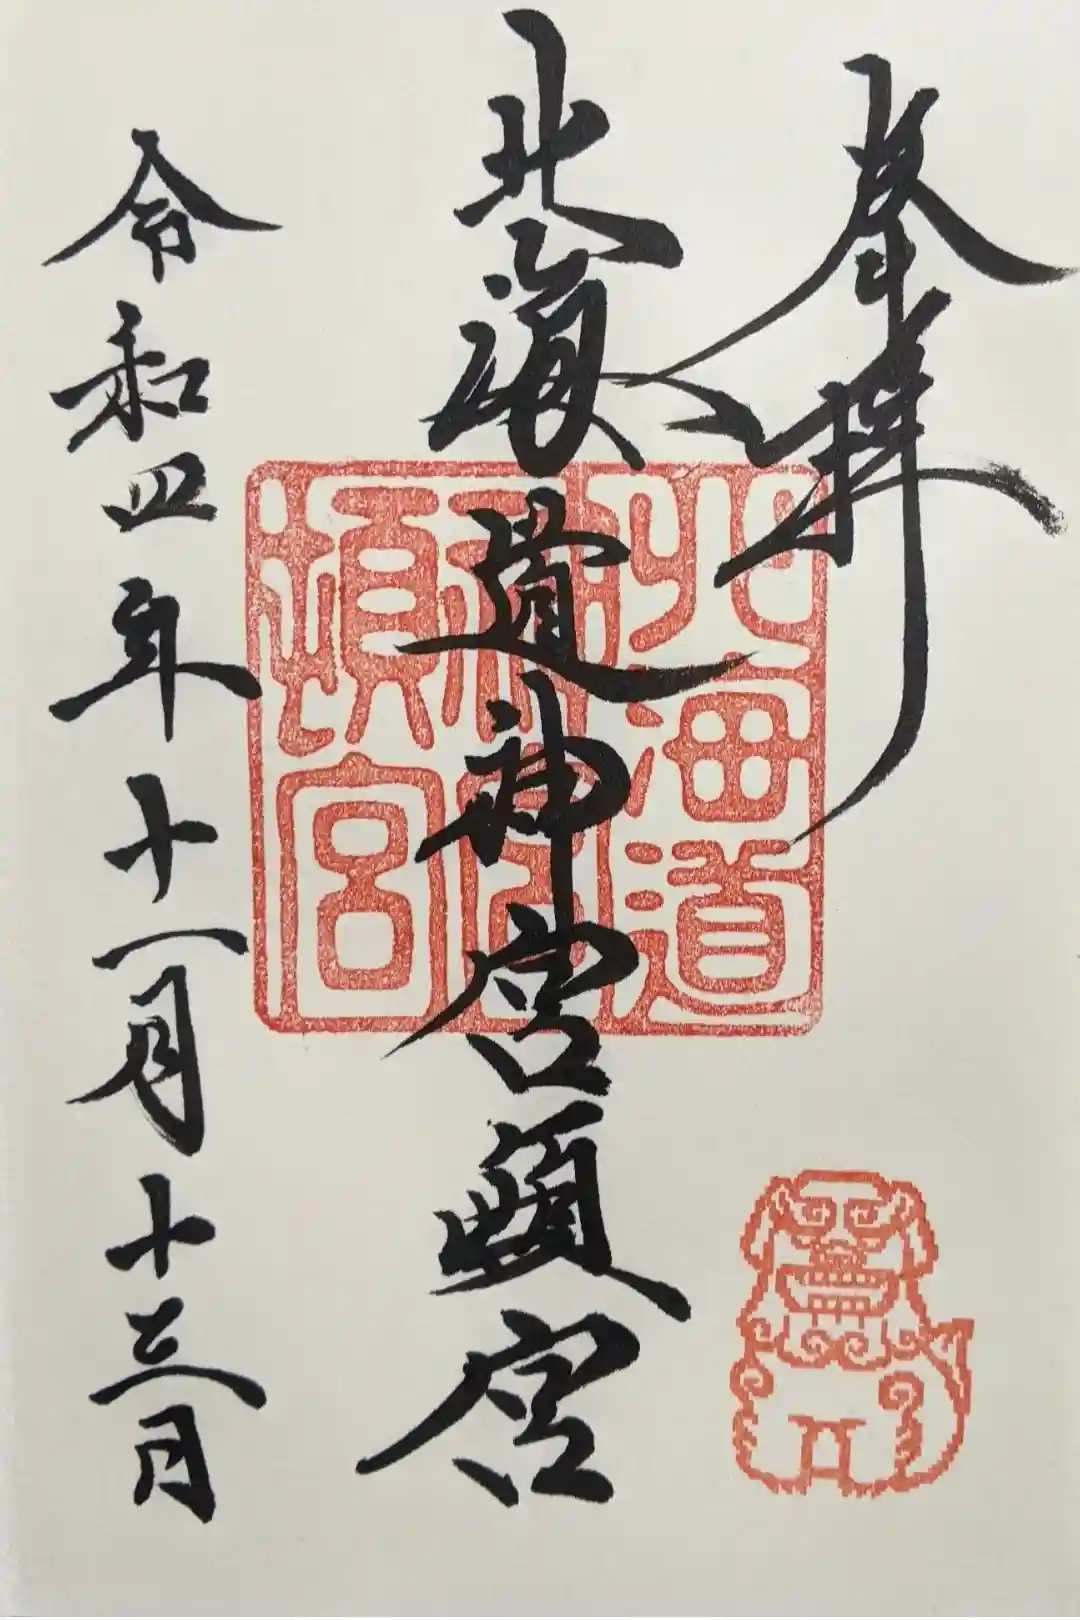 奉拝
北海道神宮頓宮
北海道
神宮
頓宮
令和四年十一月十三日